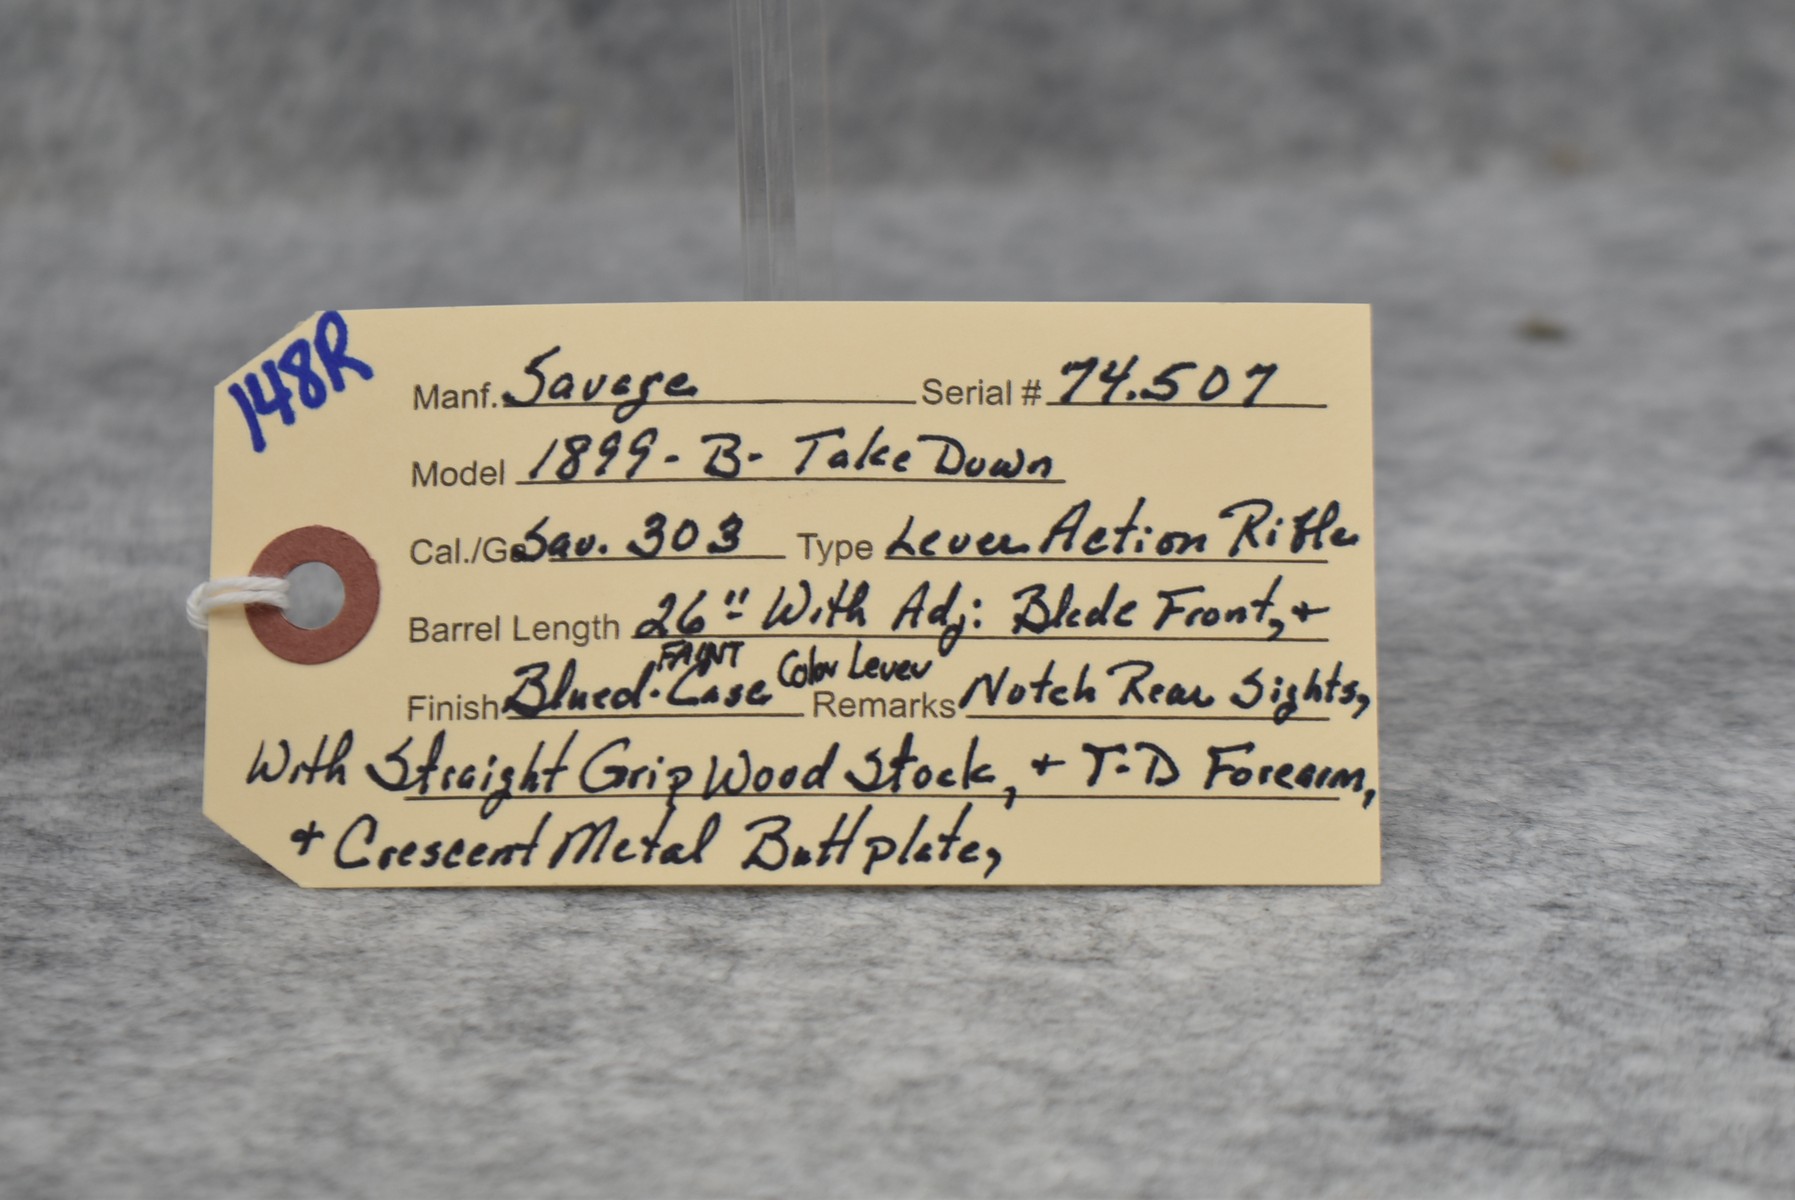 148R
Manf. Savage Serial # 74.507
Model 1899-B- Take Down
Cal./Ga. Sav. 303 Type Lever Action Rifle
Barrel Length 26" With Adj: Blade Front, +
FAINT Color Lever
Finish Blued. Case Remarks Notch Rear Sights,
With Straight Grip Wood Stock, + T-D Forearm,
+ Crescent Metal Buttplate,